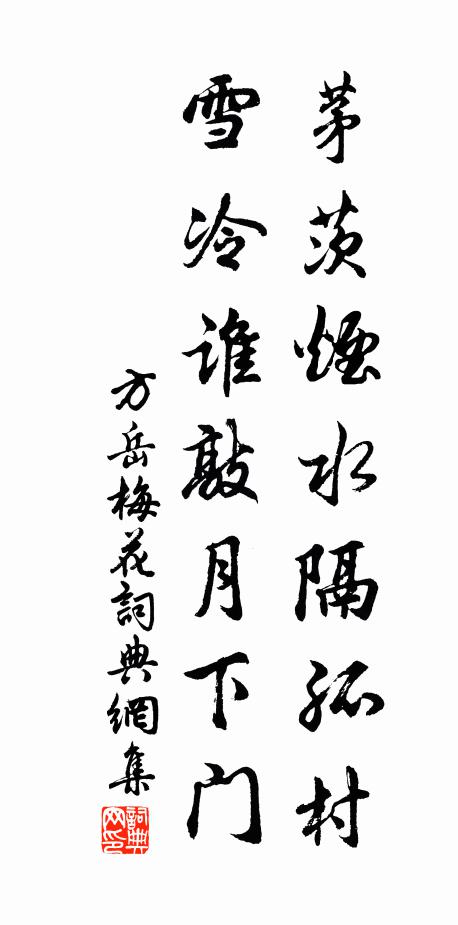 茅茨煙水隔孤村
雪冷谁敲月下门
方岳梅花詞典網集
詞典网印